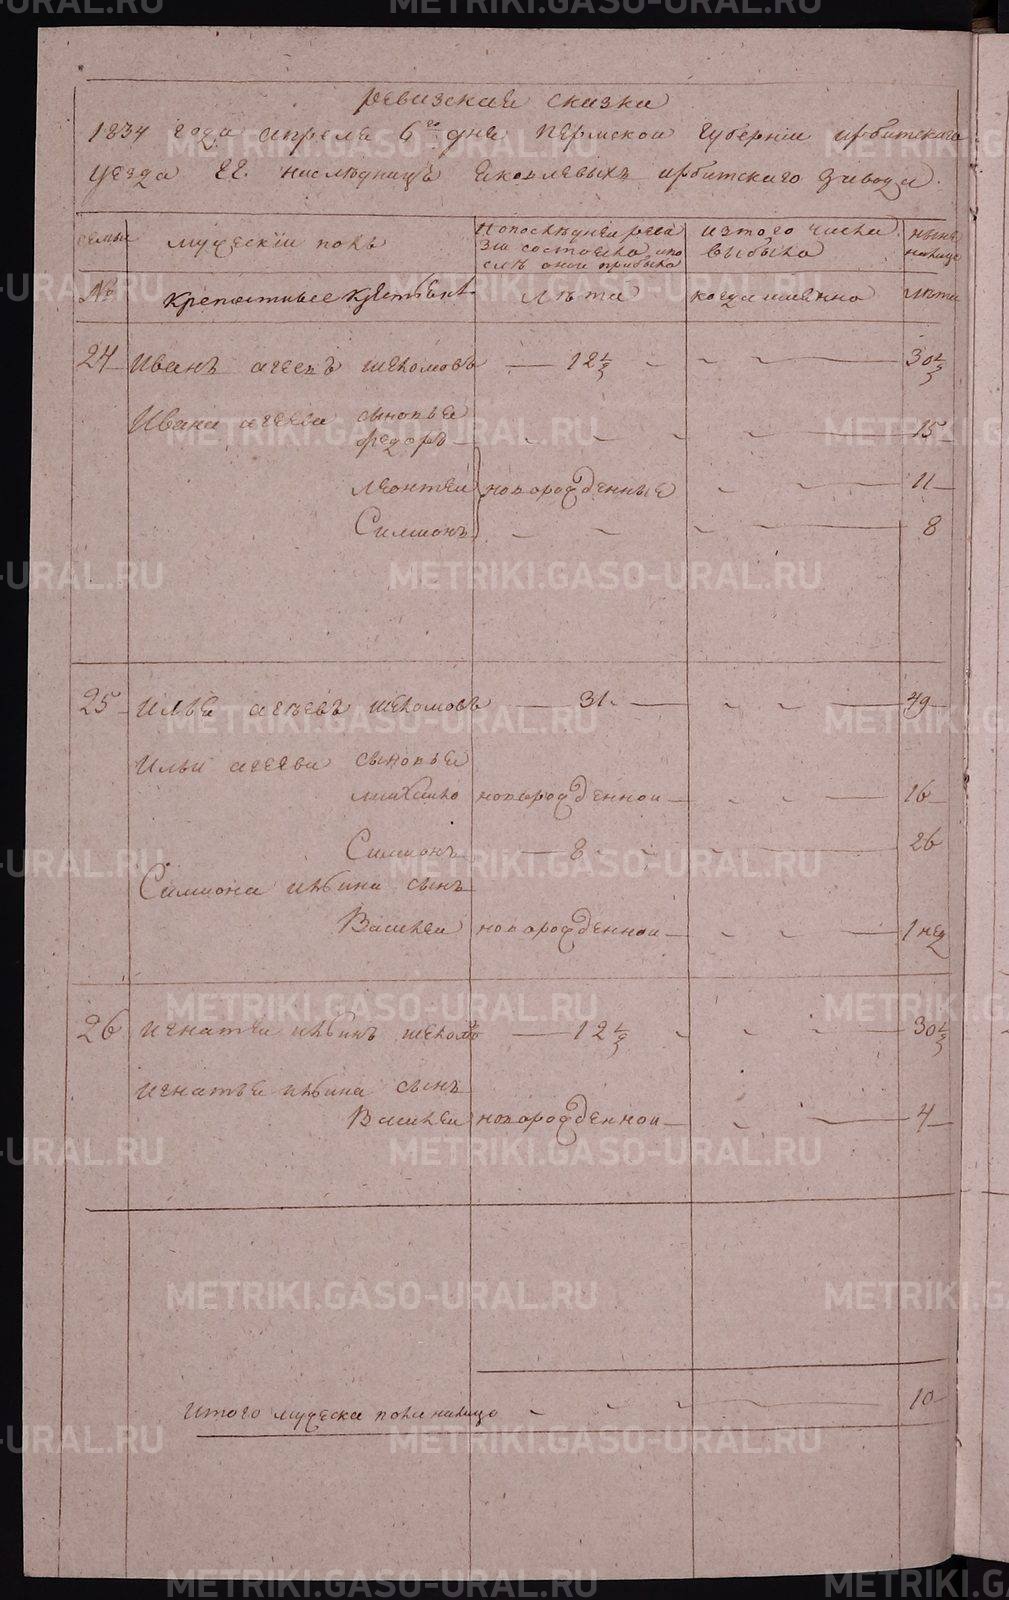 ревизская сказка
1834 года апреля 6го дня Пермской губернии ирбитскаго
уезда гг. наследницъ Яковлевыхъ ирбитскаго завода.
семьи
мужескiй полъ
по последней реви
зiи состояло и по
слѣ оной прибыло
изтого числа
выбыло
ныне
налицо
№
крепостные крестьяне
лѣта
когда имянно
лѣта
24 Иванъ агеевъ шеломовъ — 12½ 30½
Ивана агеева сыновья
федоръ 15
леонтей новорожденные 11
Симионъ 8
25 Илья агѣевъ шеломовъ — 31 49
Ильи агеева сыновья
михаило новорожденной 16
Симионъ 8 26
Симиона ильина сынъ
Василей новорожденной 1 нед
26 игнатей ильинъ шеломо 12½ 30½
игнатья ильина сынъ
Василей новорожденной 4
итого мужеска пола налицо 10
METRIKI.GASO-URAL.RU